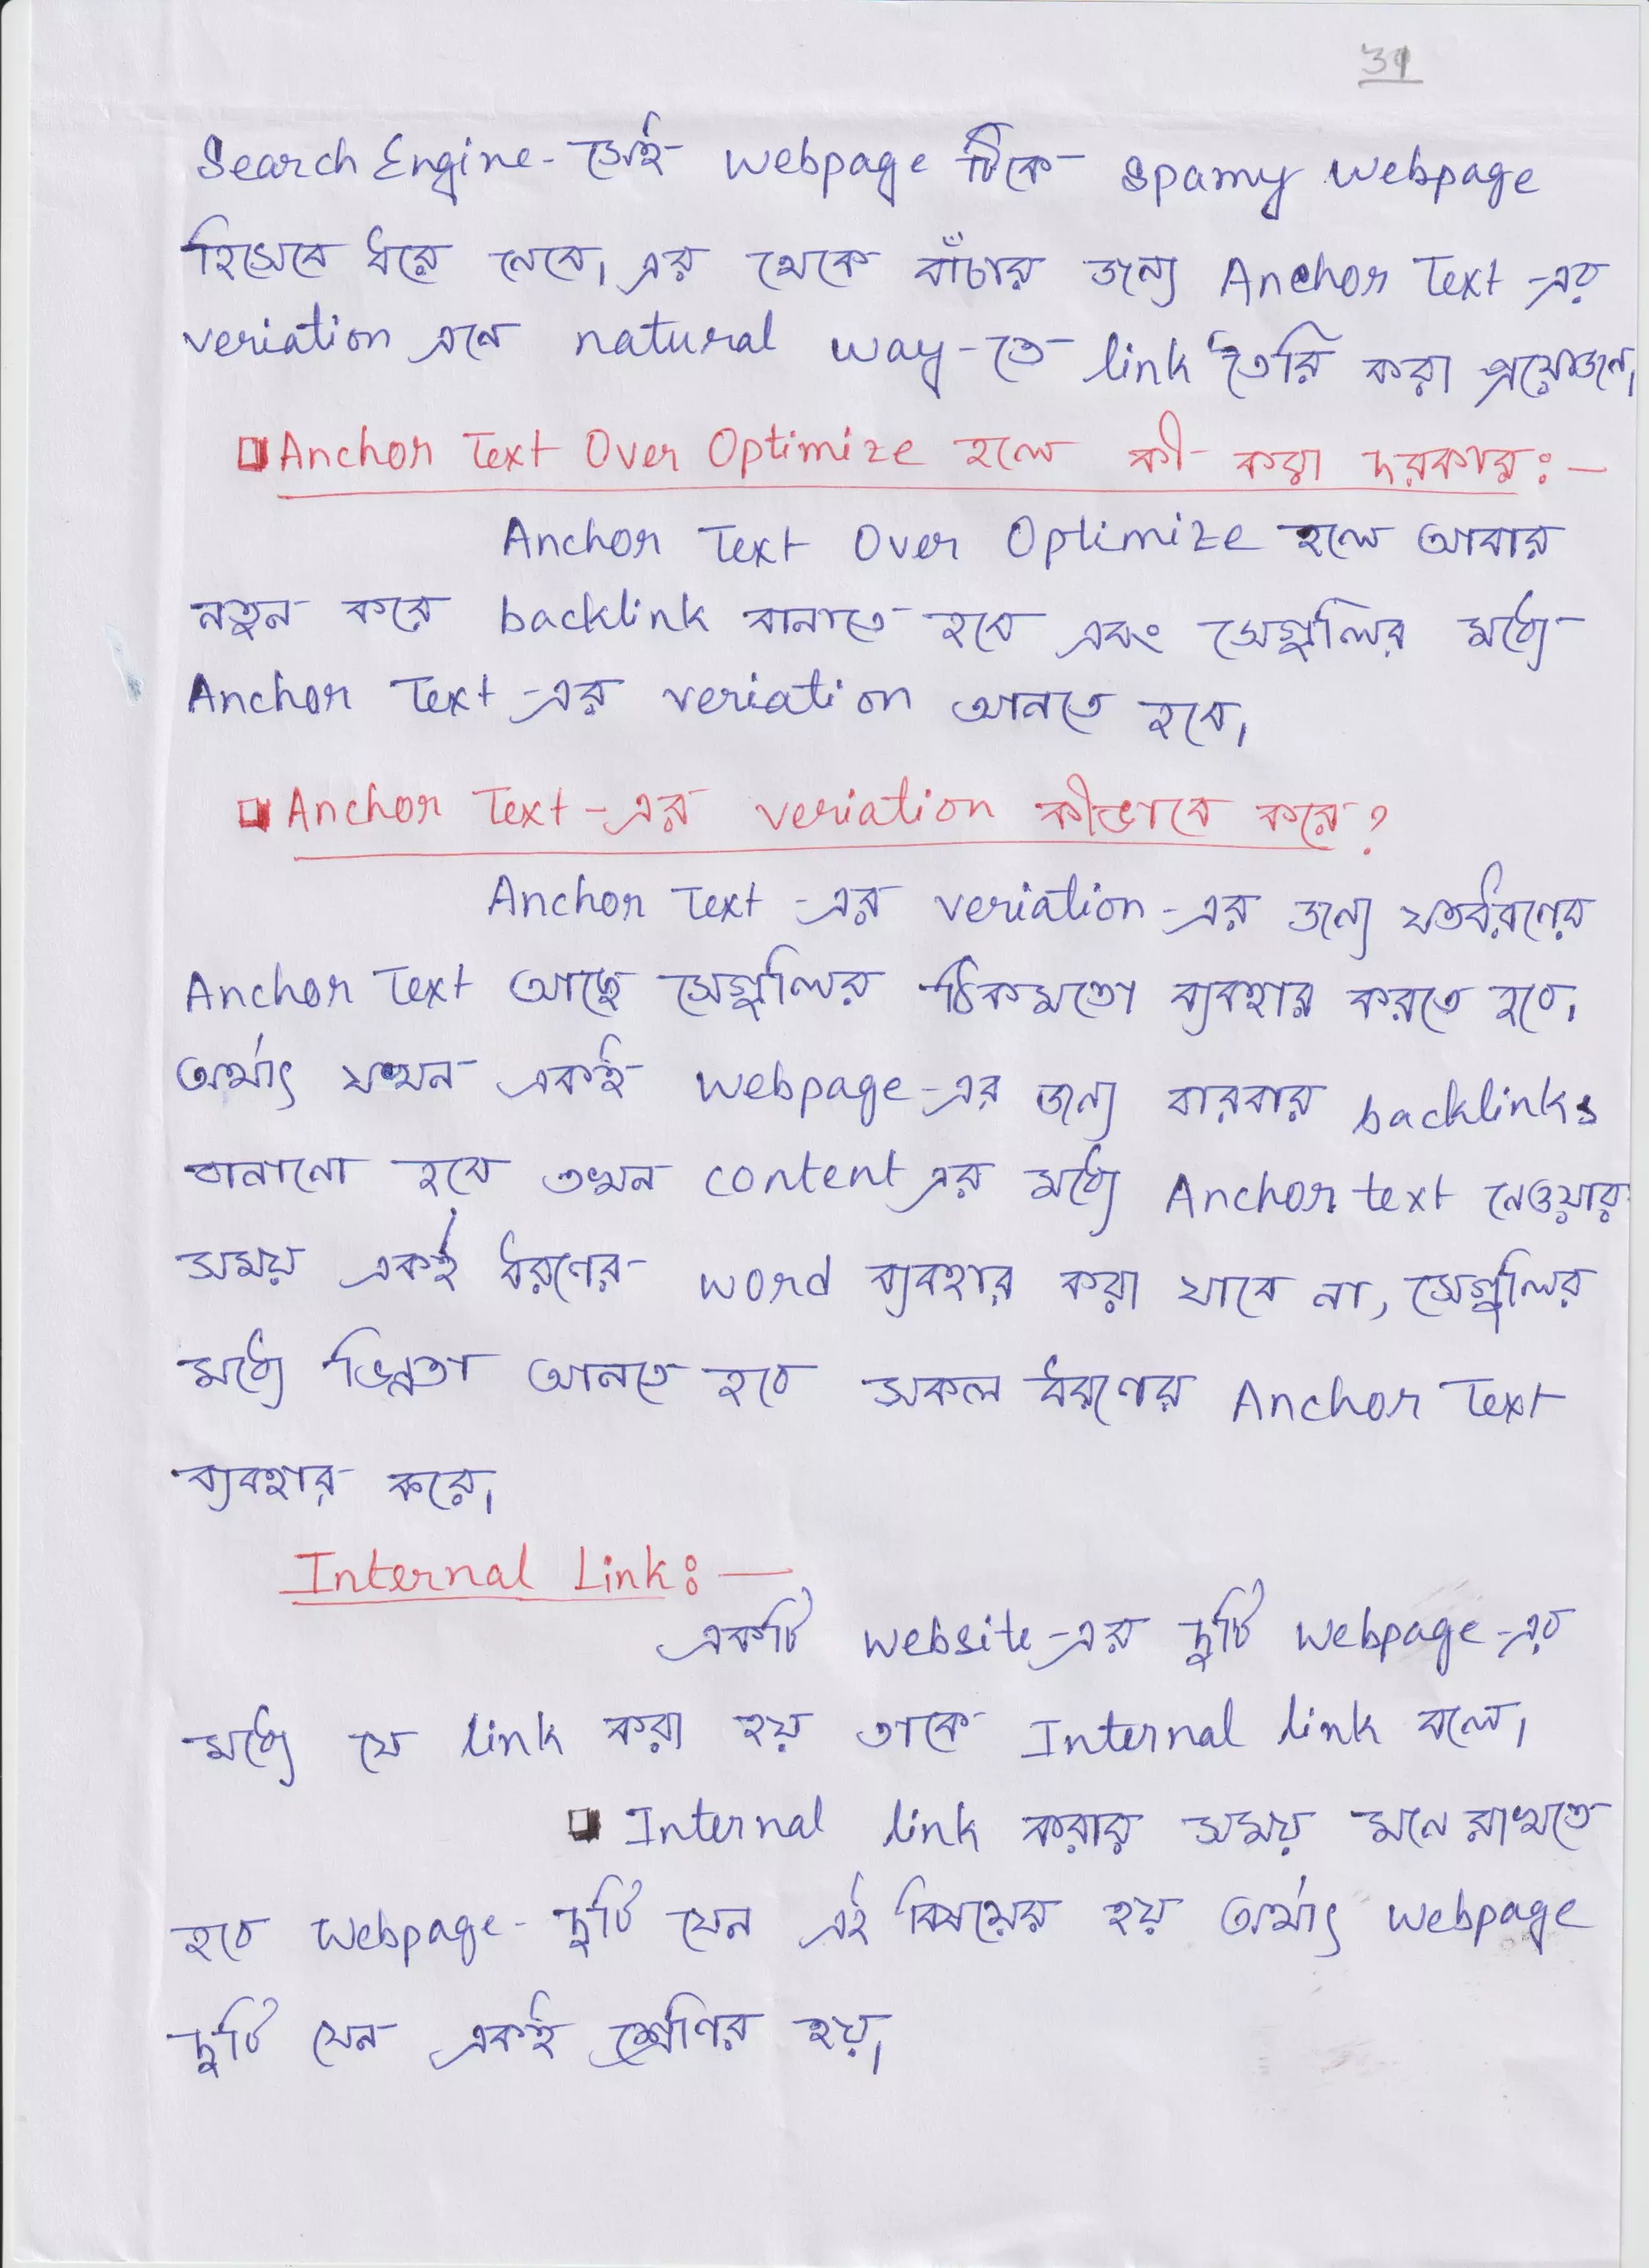 31
Search Engine- সেই webpage টিকে spamy webpage
হিসেবে ধরে নেবে। এর থেকে বাঁচার জন্য Anchor Text -এর
veriation এনে natural way-তে link তৈরি করা প্রয়োজন।
Anchor Text Over Optimize হলে কী করা দরকার:—
Anchor Text Over Optimize হলে আবার
নতুন করে backlink বানাতে হবে এবং সেগুলির মধ্যে
Anchor Text -এর veriation আনতে হবে।
Anchor Text-এর veriation কীভাবে করে?
Anchor Text -এর veriation-এর জন্য যতধরণের
Anchor Text আছে সেগুলির ঠিকমতো ব্যবহার করতে হবে।
অর্থাৎ যখন একই webpage-এর জন্য বারবার backlinks
বানানো হবে তখন content এর মধ্যে Anchor text নেওয়ার
সময় একই ধরণের word ব্যবহার করা যাবে না, সেগুলির
মধ্যে ভিন্নতা আনতে হবে সকল ধরণের Anchor Text
ব্যবহার করে।
Internal Link:—
একটি website-এর দুটি webpage-এর
মধ্যে যে link করা হয় তাকে Internal link বলে।
Internal link করার সময় মনে রাখতে
হবে webpage- দুটি যেন এই বিষয়ের হয় অর্থাৎ webpage
দুটি যেন একই শ্রেণির হয়।